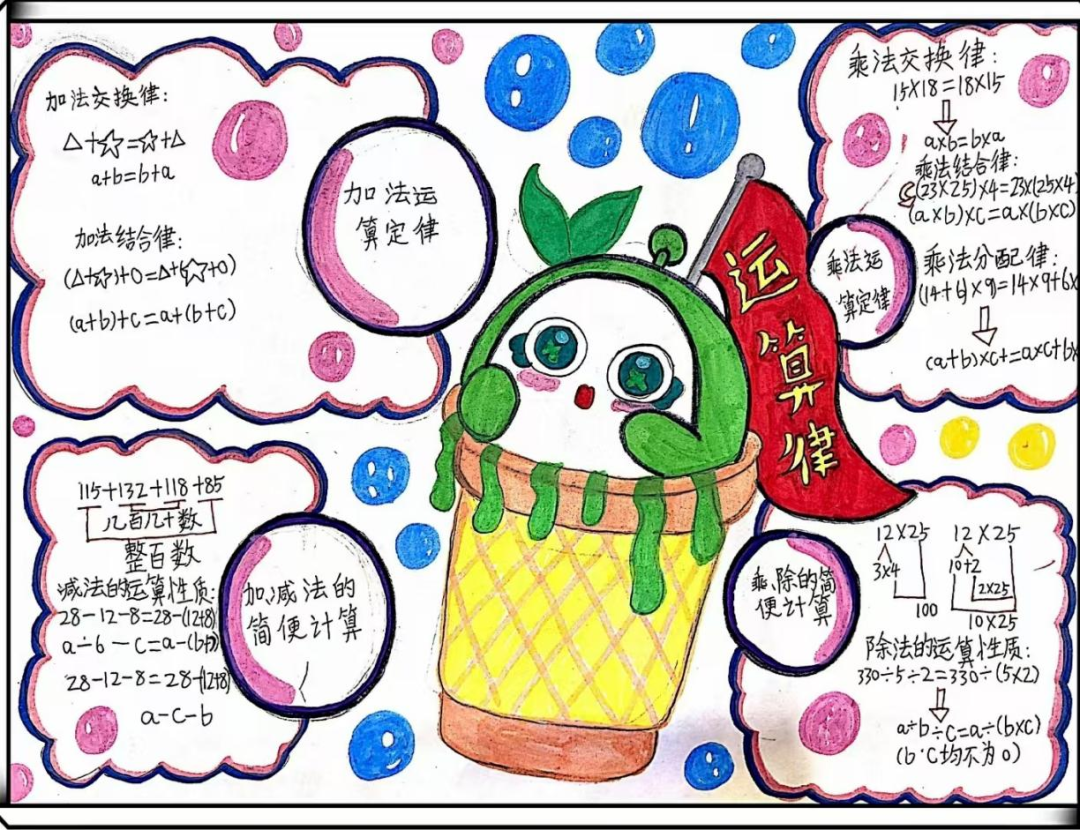 加法交换律:
△+☆=☆+△
a+b=b+a
加法结合律:
(△+☆)+O=△+(☆+O)
(a+b)+c=a+(b+c)
加法运
算定律
运算律
乘法交换律:
15×18=18×15
a×b=b×a
乘法结合律:
(23×25)×4=23×(25×4
(a×b)×c=a×(b×c)
乘法运
算定律
乘法分配律:
(14+6)×9)=14×9+6×
(a+b)×c+=a×c+b×
115+132+118+85
几百几十数
整百数
减法的运算性质:
28-12-8=28-(12+8)
28-12-8=28-(12+8)
a-c-b
加减法的
简便计算
乘除的简
便计算
12×25 12×25
3×4
10+2
2×25
100
10×25
除法的运算性质:
330÷5÷2=330÷(5×2)
a÷b÷c=a÷(b×c)
(b·c均不为0)